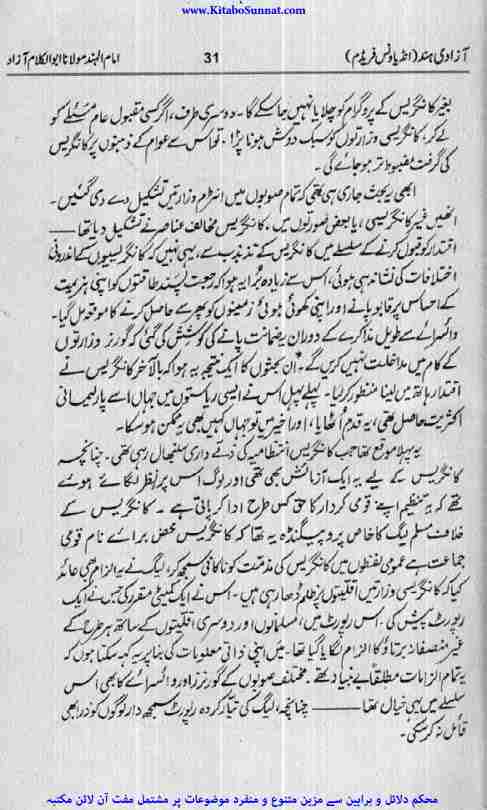 www.KitaboSunnat.com
آزادی ہند (انڈیا ونس فریڈم) 31 امام الہند مولانا ابوالکلام آزاد
بغیر کانگریس کے پروگرام کو چلایا نہیں جا سکے گا۔ دوسری طرف، اگر کسی مقبول عام مسئلے کو
لے کر، کانگریسی وزارتوں کو سبک دوش ہونا پڑا۔ تو اس سے عوام کے ذہنوں پر کانگریس
کی گرفت مضبوط تر ہو جائے گی۔
ابھی یہ بحث جاری ہی تھی کہ تمام صوبوں میں انٹرم وزارتیں تشکیل دے دی گئیں۔
انھیں غیر کانگریسی، یا بعض صورتوں میں، کانگریس مخالف عناصر نے تشکیل دیا تھا ——
اقتدار کو قبول کرنے کے سلسلے میں کانگریس کے تذبذب سے، یہی نہیں کہ کانگریسیوں کے اندرونی
اختلافات کی نشاندہی ہوئی، اس سے زیادہ بُرا یہ ہوا کہ رجعت پسند طاقتوں کو اپنی ہزیمت
کے احساس پر قابو پانے اور اپنی کھوئی ہوئی زمینوں کو پھر سے حاصل کرنے کا موقع مل گیا۔
وائسرائے سے طویل مذاکرے کے دوران یہ ضمانت پانے کی کوشش کی گئی کہ گورنر وزارتوں
کے کام میں مداخلت نہیں کریں گے۔ ان بحثوں کا ایک نتیجہ یہ ہوا کہ بالآخر کانگریس نے
اقتدار ہاتھ میں لینا منظور کر لیا۔ پہلے پہل اس نے ایسی ریاستوں میں جہاں اسے پارلیمانی
اکثریت حاصل تھی، یہ قدم اٹھایا، اور اخیر میں تو جہاں کہیں بھی یہ ممکن ہو سکا۔
یہ پہلا موقع تھا جب کانگریس انتظامیہ کی ذمے داری سنبھال رہی تھی۔ چنانچہ
کانگریس کے لیے یہ ایک آزمائش بھی تھی اور لوگ اس پر نظر لگائے ہوئے
تھے کہ یہ تنظیم اپنے قومی کردار کا حق کس طرح ادا کر پاتی ہے۔ کانگریس کے
خلاف مسلم لیگ کا خاص پروپیگنڈہ یہ تھا کہ کانگریس محض برائے نام قومی
جماعت ہے عمومی لفظوں میں کانگریس کی مذمت کو ناکافی سمجھ کر، لیگ نے یہ الزام بھی عائد
کیا کہ کانگریسی وزارتیں اقلیتوں پر ظلم ڈھا رہی ہیں۔ اس نے ایک کمیٹی مقرر کی جس نے ایک
رپورٹ پیش کی، اس رپورٹ میں، مسلمانوں اور دوسری اقلیتوں کے ساتھ ہر طرح کے
غیر منصفانہ برتاؤ کا الزام لگایا گیا تھا۔ میں اپنی ذاتی معلومات کی بنا پر یہ کہہ سکتا ہوں کہ
یہ تمام الزامات مطلقاً بے بنیاد تھے۔ مختلف صوبوں کے گورنرز اور وائسرائے کا بھی اس
سلسلے میں یہی خیال تھا —— چنانچہ، لیگ کی تیار کردہ رپورٹ سمجھ دار لوگوں کو ذرا بھی
قائل نہ کر سکی۔
محکم دلائل و براہین سے مزین متنوع و منفرد موضوعات پر مشتمل مفت آن لائن مکتبہ